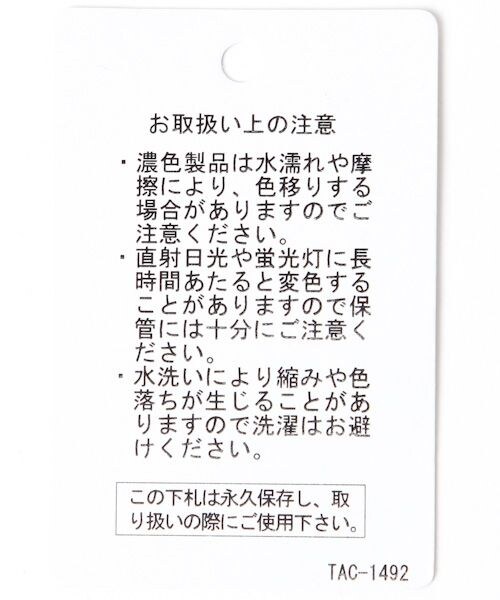 お取扱い上の注意
・濃色製品は水濡れや摩
擦により、色移りする
場合がありますのでご
注意ください。
・直射日光や蛍光灯に長
時間あたると変色する
ことがありますので保
管には十分にご注意く
ださい。
・水洗いにより縮みや色
落ちが生じることがあ
りますので洗濯はお避
けください。
この下札は永久保存し、取
り扱いの際にご使用下さい。
TAC-1492